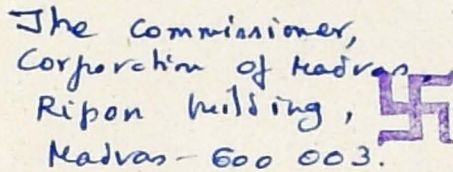 The Commissioner,
Corporation of Madras
Ripon building,
Madras - 600 003.